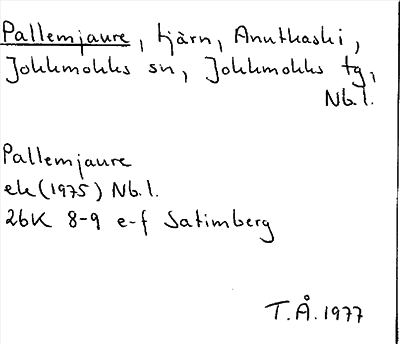 Pallemjaure, tjärn, Anutkaski,
Jokkmokks sn, Jokkmokks tg,
Nb.l.
Pallemjaure
ek (1975) Nb.l.
26K 8-9 e-f Satimberg
T.Å. 1977